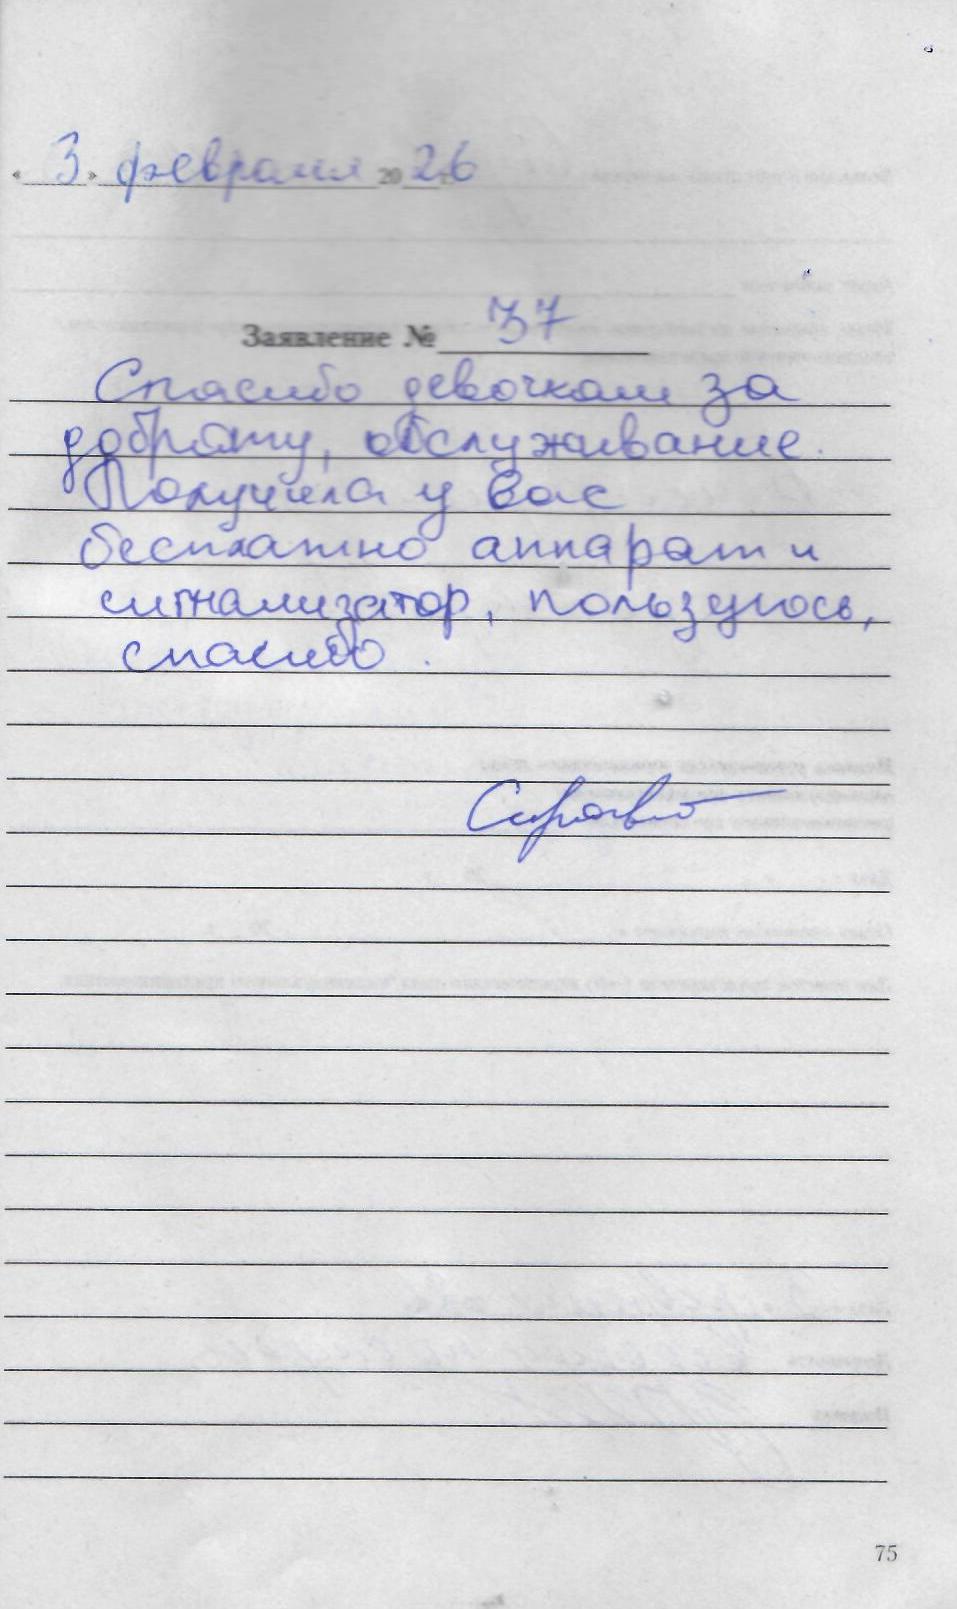 «3» февраля 2026
Заявление № 37
Спасибо девочкам за
доброту, обслуживание.
Получила у вас
бесплатно аппарат и
сигнализатор, пользуюсь,
спасибо.
75